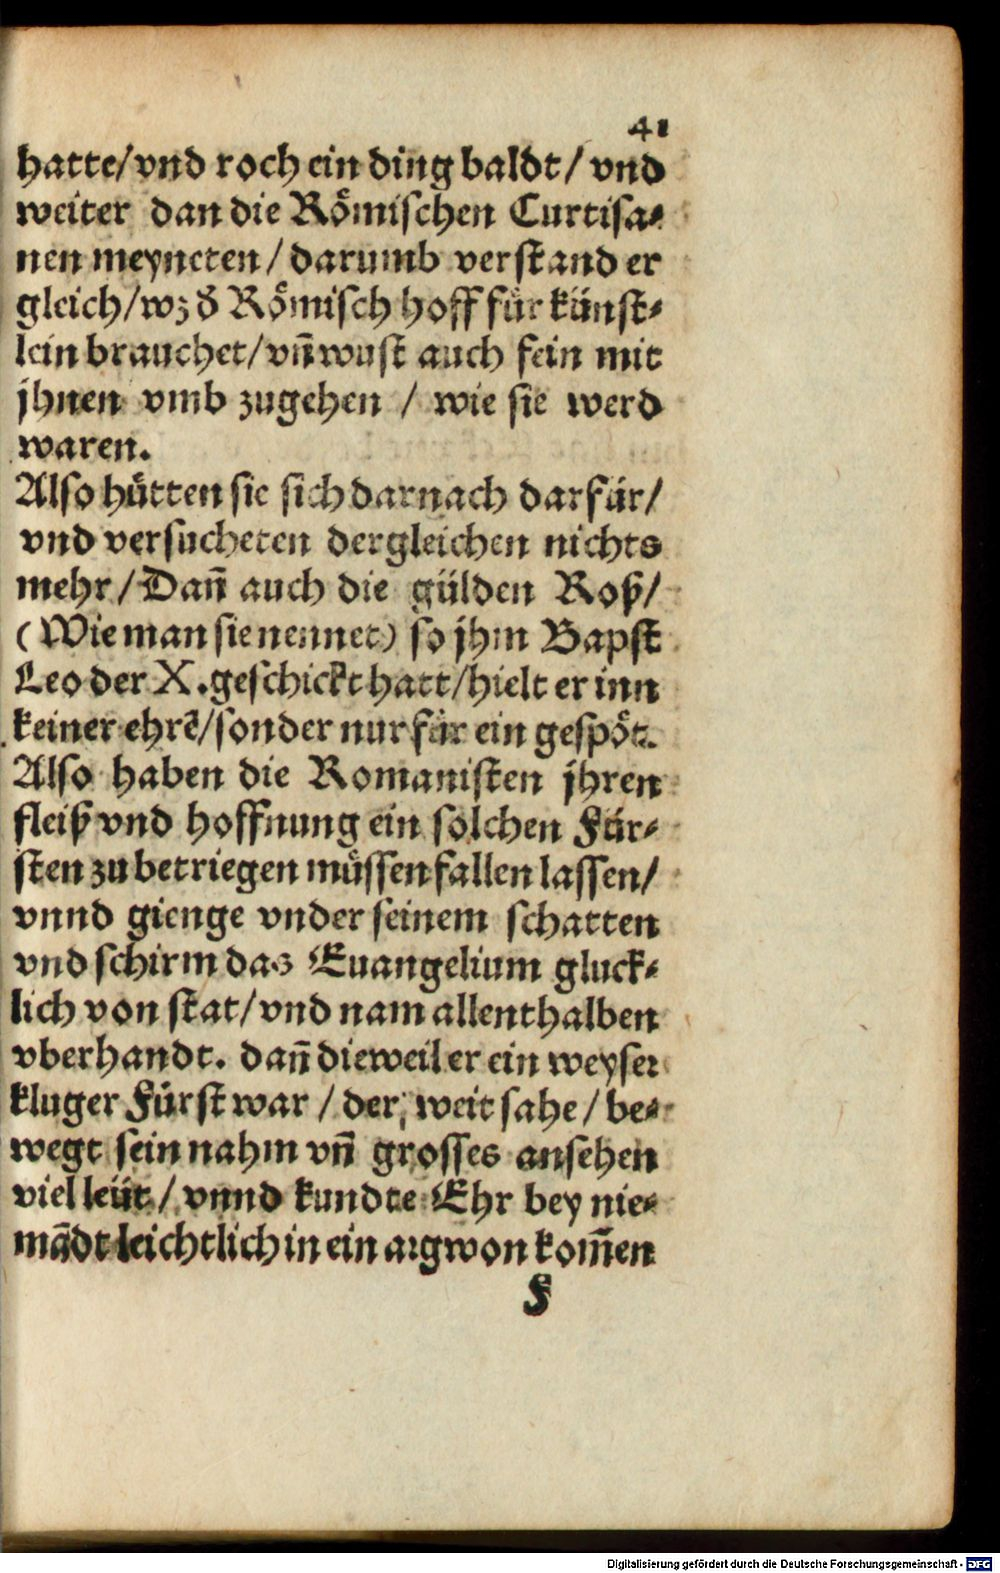 41
hatte/ vnd roch ein ding baldt/ vnd
weiter dan die Roͤmischen Curtisa-
nen meyneten/ darumb verstand er
gleich/ wz d̕ Roͤmisch hoff fuͤr kuͤnst-
lein brauchet/ vñ wust auch fein mit
jhnen vmb zugehen / wie sie werd
waren.
Also huͤtten sie sich darnach darfuͤr/
vnd versucheten dergleichen nichts
mehr/ Dañ auch die guͤlden Roß/
(Wie man sie nennet) so jhm Bapst
Leo der X. geschickt hatt/ hielt er inn
keiner ehrẽ/ sonder nur fuͤr ein gespoͤt.
Also haben die Romanisten jhren
fleiß vnd hoffnung ein solchen Fuͤr-
sten zu betriegen muͤssen fallen lassen/
vnnd gienge vnder seinem schatten
vnd schirm das Euangelium gluck-
lich von stat/ vnd nam allenthalben
vberhandt. dañ dieweil er ein weyser
kluger Fuͤrst war / der, weit sahe/ be-
wegt sein nahm vñ grosses ansehen
viel leüt/ vnnd kundte Ehr bey nie-
mãdt leichtlich in ein argwon kom̃en
F
Digitalisierung gefördert durch die Deutsche Forschungsgemeinschaft - DFG